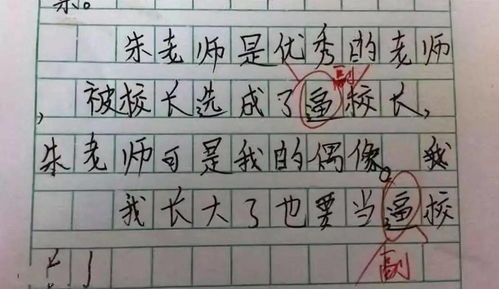 条。
朱老师是优秀的老师
副
，被校长选成了逼校长，
朱老师可是我的偶像。我
我长大了也要当逼校
长！
副